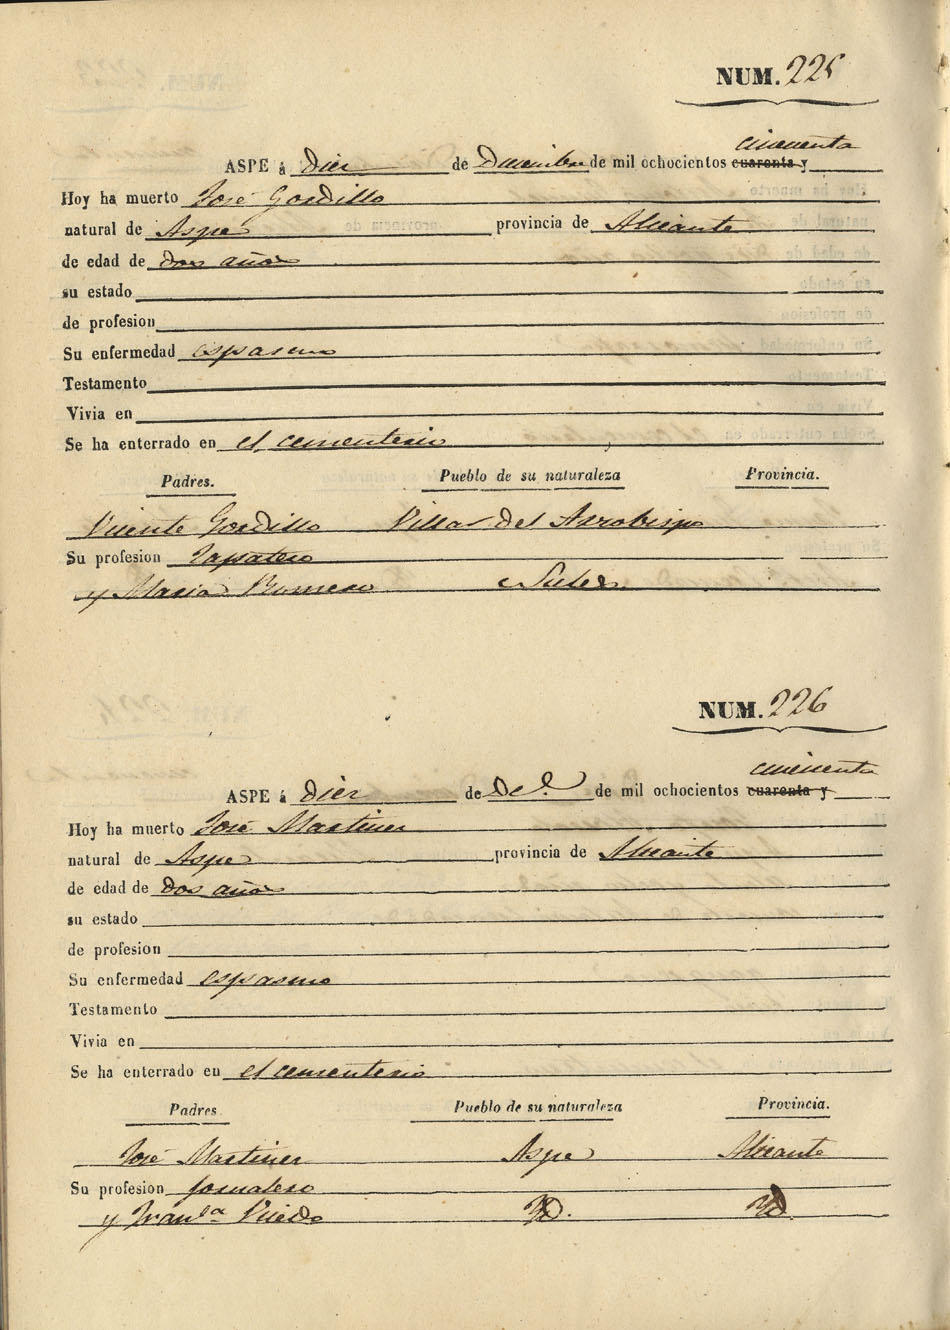 NUM. 225
cincuenta
ASPE á diez de Diciembre de mil ochocientos cuarenta y
Hoy ha muerto José Gordillo
natural de Aspe provincia de Alicante
de edad de dos años
su estado
de profesion
Su enfermedad espasmo
Testamento
Vivia en
Se ha enterrado en el cementerio
Padres. Pueblo de su naturaleza Provincia.
Vicente Gordillo Villar del Arzobispo
Su profesion Zapatero
y Maria Romero
NUM. 226
cincuenta
ASPE á diez de De. de mil ochocientos cuarenta y
Hoy ha muerto José Martinez
natural de Aspe provincia de Alicante
de edad de dos años
su estado
de profesion
Su enfermedad espasmo
Testamento
Vivia en
Se ha enterrado en el cementerio
Padres Pueblo de su naturaleza Provincia.
José Martinez Aspe Alicante
Su profesion Jornalero
y Franca Yd. Yd.